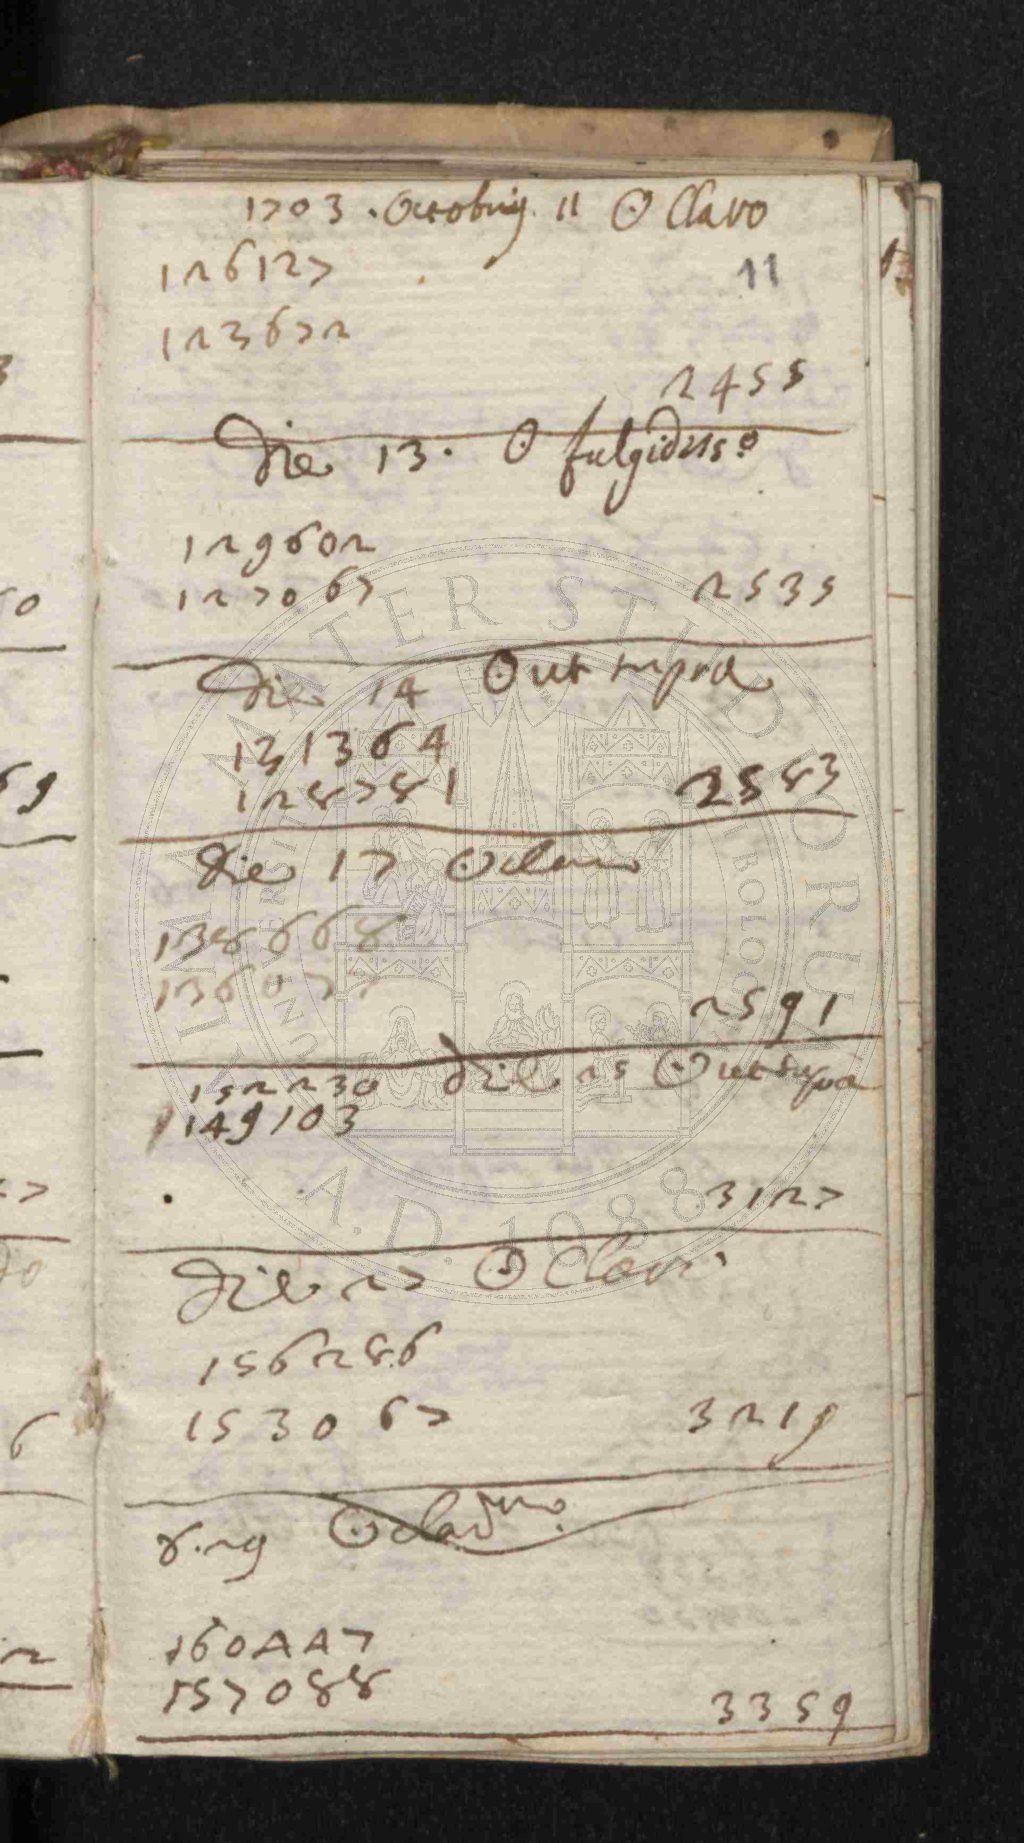 1703. Octobris. 11 ☉ Claro
126127
11
123672
2455
Die 13. ☉ fulgidus
129602
127067 2535
Die 14 ☉ ut supra
131364
128781 2583
Die 17 ☉ claro
138668
136077
2591
152230 Die 25 ☉ ut supra
149103
3127
Die 27 ☉ Claro
156286
153067 3219
29 ☉
160447
157088
3359
ALMA MATER STUDIORUM
A.D. 1088